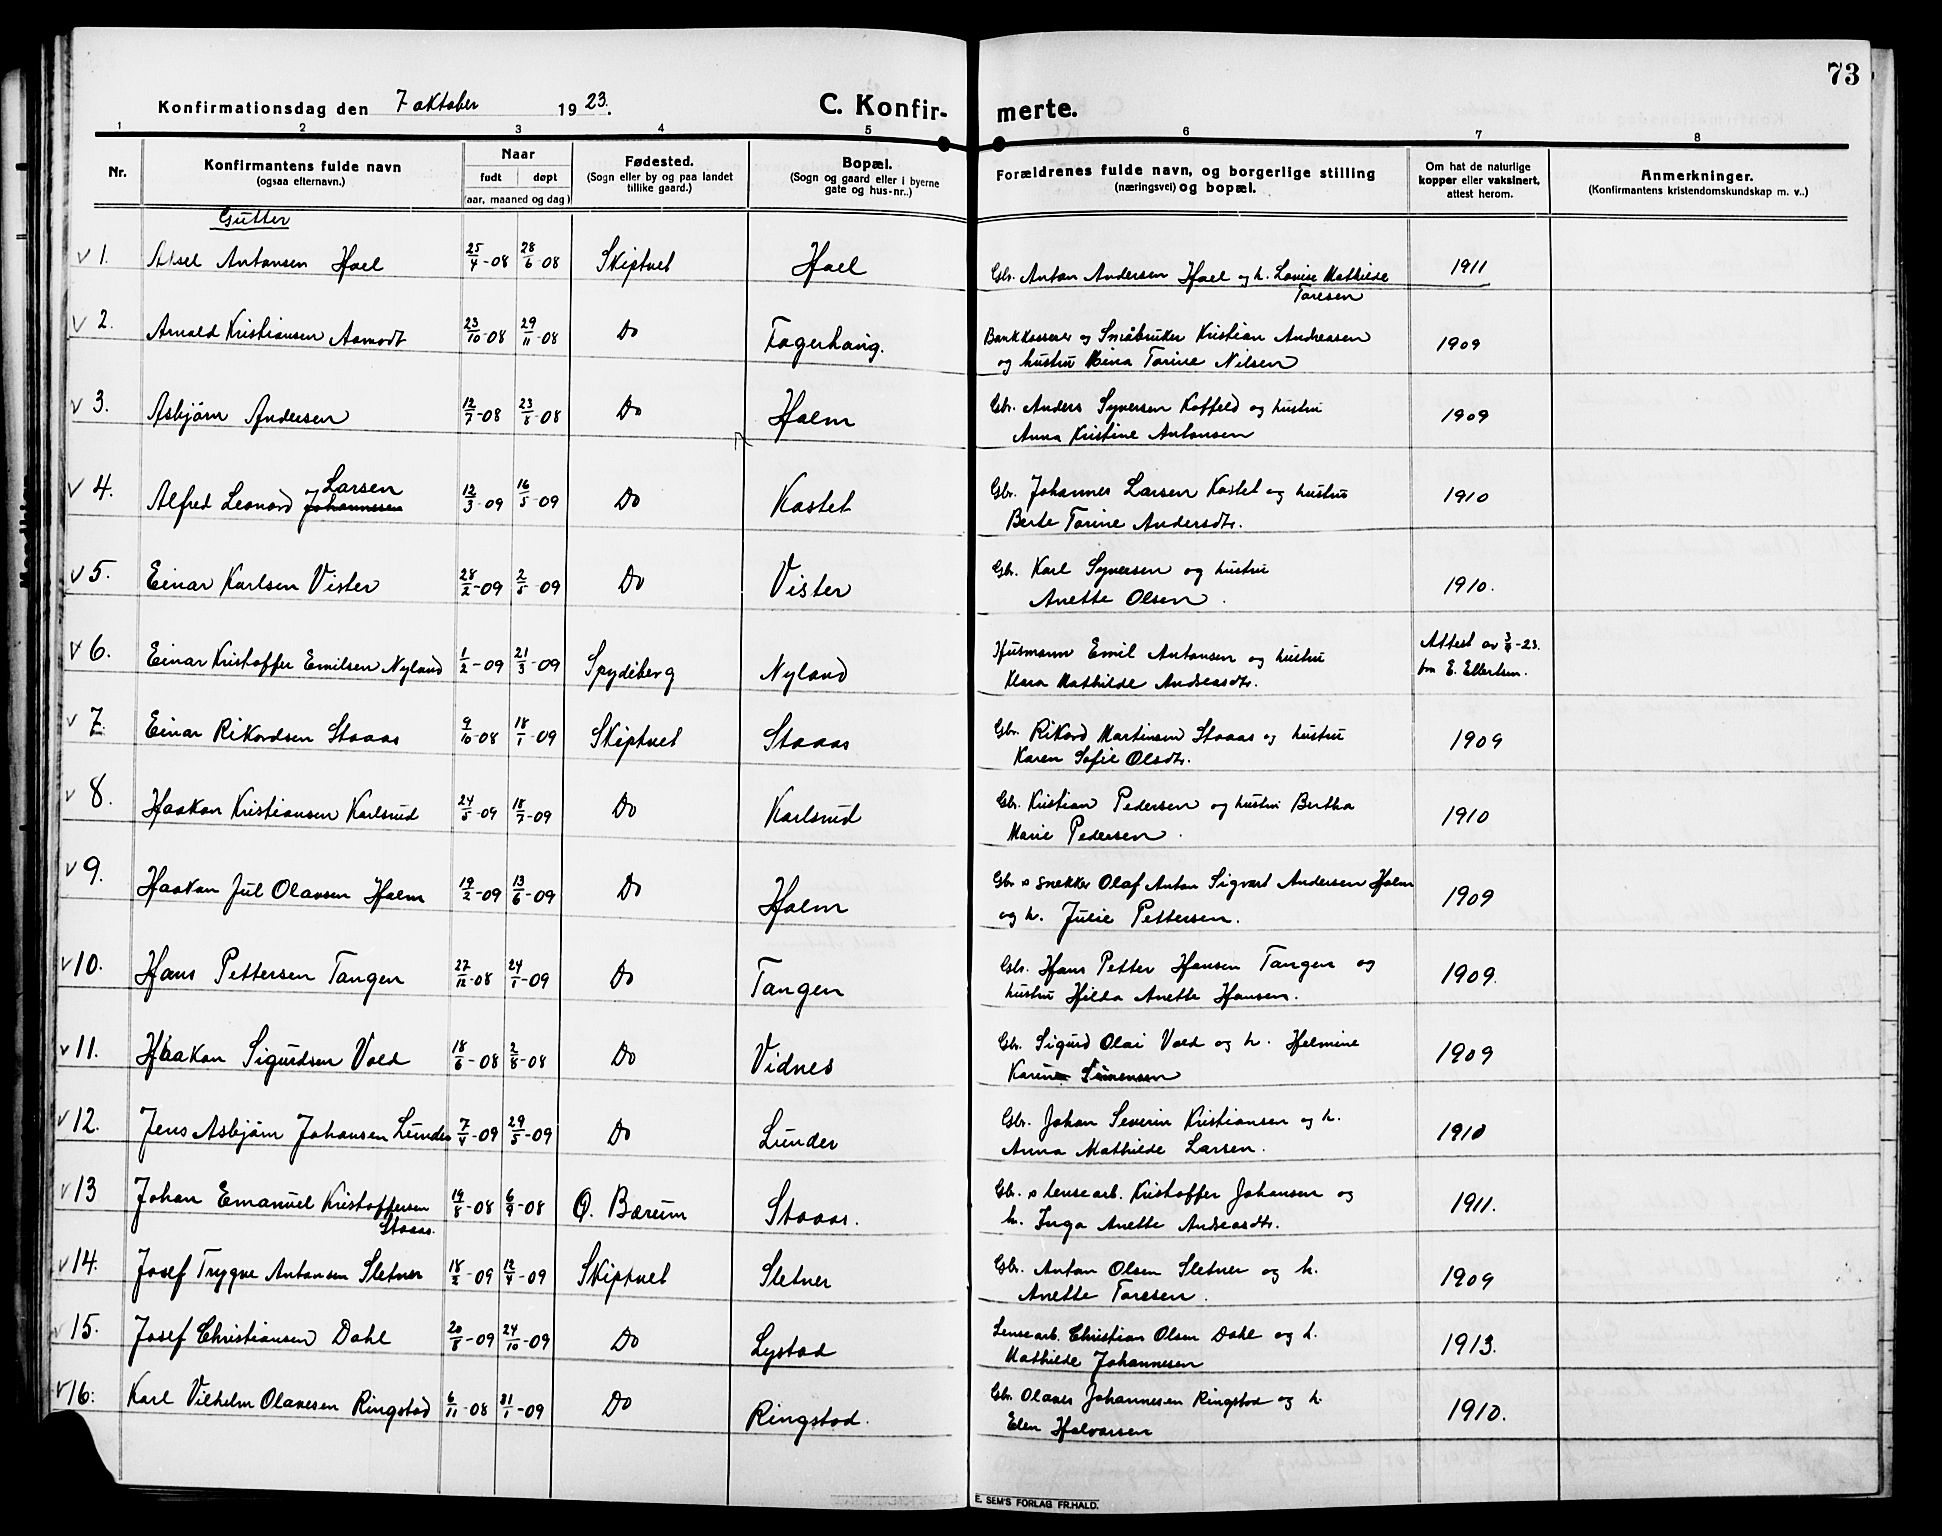 73
Konfirmationsdag den 7 oktober 1923.
C. Konfirmerte.
1 2 3 4 5 6 7 8
Nr.
Konfirmantens fulde navn
(ogsaa efternavn.)
Naar
født døpt
(aar, maaned og dag)
Fødested.
(Sogn eller by og paa landet
tillike gaard.)
Bopæl.
(Sogn og gaard eller i byerne
gate og hus-nr..)
Forældrenes fulde navn, og borgerlige stilling
(næringsvei) og bopæl.
Om hat de naturlige
kopper eller vaksinert,
attest herom.
Anmerkninger.
(Konfirmantens kristendomskundskap m. v..)
Gutter
v 1. Aksel Antonsen Hoel 25/4-08 28/6 08 Skiptvet Hoel Gbr. Anton Andersen Hoel og h. Lovise Mathilde 1911
Toresen
v 2. Arnold Kristiansen Aamodt 23/10-08 29/11-08 Do Fagerhaug. Bankkasserer og Småbruker Kristian Andreasen 1909
og hustru Mina Torine Nilsen
v 3. Asbjørn Andersen 12/7-08 23/8-08 Do Holm Gbr. Anders Syversen Koffeld og hustru 1909
Anna Kristine Antonsen
v 4. Alfred Leonard Johannesen Larsen 12/3-09 16/5-09 Do Kastet Gbr. Johannes Larsen Kastet og hustru 1910
Berte Torine Andersdtr.
v 5. Einar Karlsen Vister 28/2-09 2/5-09 Do Vister Gbr. Karl Syversen og hustru 1910.
Anette Olsen.
v 6. Einar Kristoffer Emilsen Nyland 1/2-09 21/3-09 Spydeberg Nyland Husmann Emil Antonsen og hustru Attest av 3/9-23.
Klara Mathilde Andreasdtr. fra E. Ellertsen.
v 7. Einar Rikardsen Staaas 9/10-08 18/1-09 Skiptvet Staaas Gbr. Rikard Martinsen Staaas og hustru 1909
Karen Sofie Olsdtr.
v 8. Haakon Kristiansen Karlsrud 24/5-09 18/7-09 Do Karlsrud Gbr. Kristian Pedersen og hustru Bertha 1910
Marie Pedersen.
v 9. Haakon Jul Olavsen Holm 19/2-09 13/6-09 Do Holm Gbr o snekker Olaf Anton Sigvart Andersen Holm 1909
og h. Julie Pettersen.
v 10. Hans Pettersen Tangen 27/12-08 24/1-09 Do Tangen Gbr. Hans Petter Hansen Tangen og 1909.
hustru Hilda Anette Hansen.
v 11. Haakon Sigurdsen Vold 18/6-08 2/8-08 Do Vidnes Gbr. Sigurd Olai Vold og h. Helmine 1909
Karen Simensen
v 12. Jens Asbjørn Johansen Lunder 7/4-09 29/5-09 Do Lunder Gbr. Johan Severin Kristiansen og h. 1910
Anna Mathilde Larsen.
v 13 Johan Emanuel Kristoffersen 19/8-08 6/9-08 Ø. Bærum Staaas. Gbr. o lensearb. Kristoffer Johansen og 1911.
Staaas. h. Inga Anette Andreasdtr.
v 14. Josef Trygve Antonsen Sletner 18/2-09 12/4-09 Skiptvet Sletner Gbr. Anton Olsen Sletner og h. 1909
Anette Toresen.
v 15. Josef Christiansen Dahl 20/8-09 24/10-09 Do Lystad Lensearb. Christian Olsen Dahl og h. 1913.
Mathilde Johannesen
v 16. Karl Vilhelm Olavesen Ringstad 6/11-08 31/1-09 Do Ringstad. Gbr. Olaves Johannesen Ringstad og h. 1910.
Elen Halvorsen
E. SEM'S FORLAG FR.HALD.